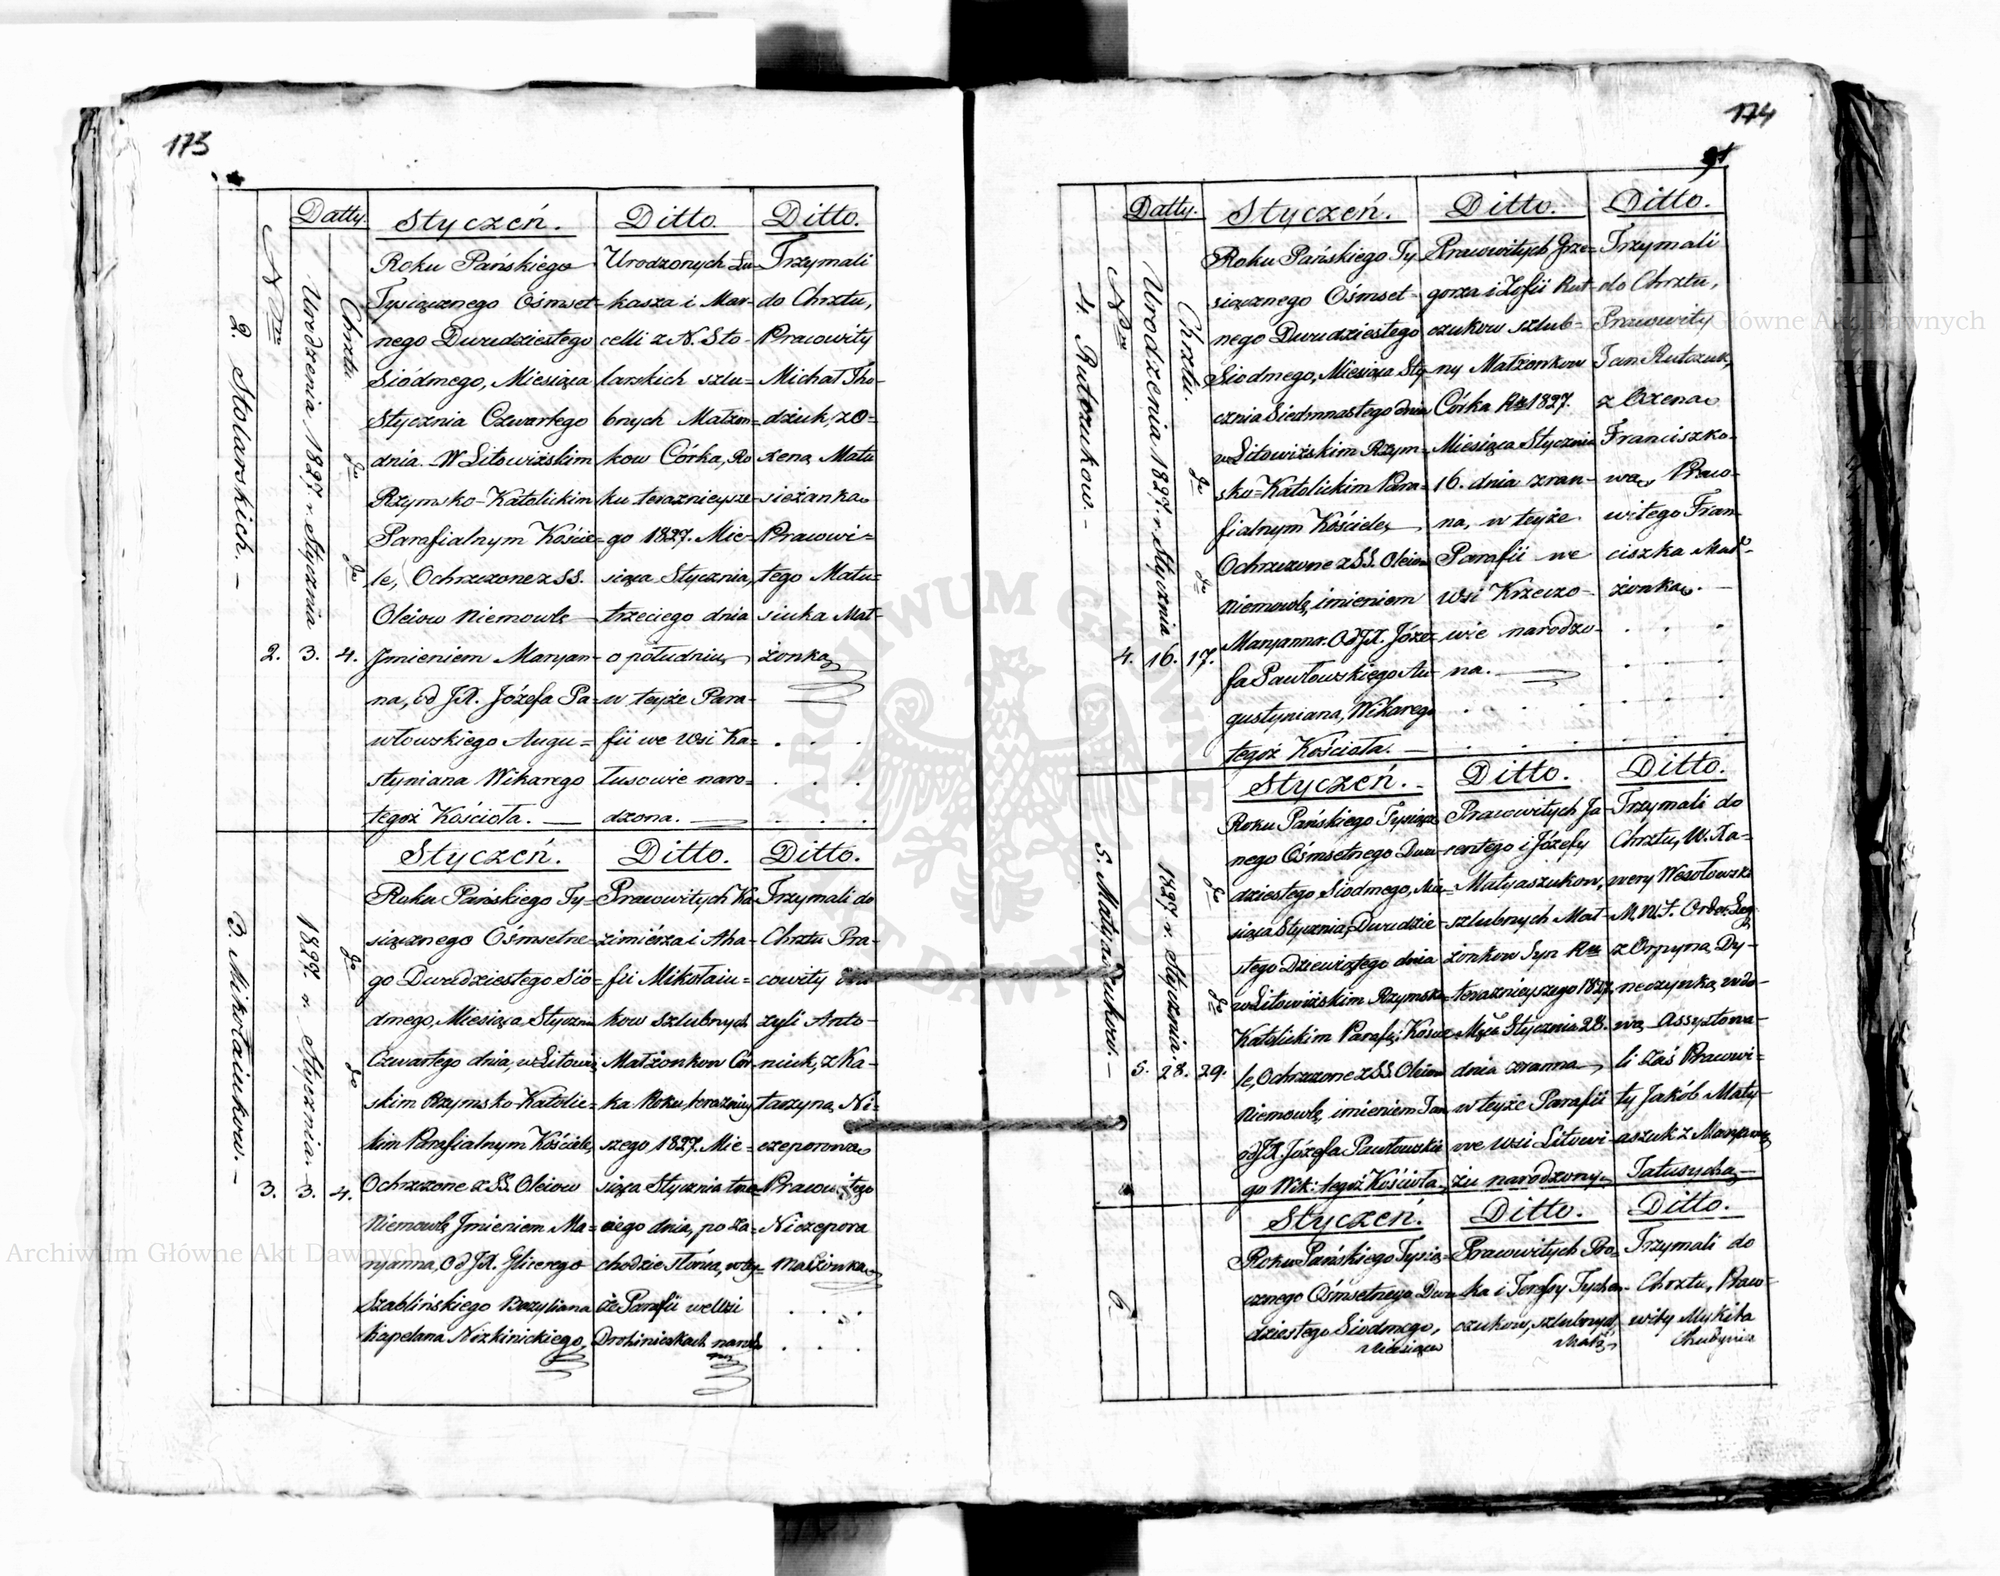 173
Datty.
Nro
Urodzenia 1827. r. Stycznia
Chrztu.
2. Stolarskich. —
2.
3.
4.
Styczeń.
Roku Pańskiego
Tysiącznego Ośmset-
nego Dwudziestego
Siódmego, Miesiąca
Stycznia Czwartego
dnia. W Litowiżskim
Rzymsko-Katolickim
Parafialnym Koście-
le, Ochrzczone z SS.
Oleiow Niemowlę
Jmieniem Maryan-
na, od JX. Józefa Pa-
włowskiego Augu-
styniana Wikarego
tegoż Kościoła. —
Ditto.
Urodzonych Łu-
kasza i Mar-
celli z N. Sto-
larskich szlu-
bnych Małżon-
kow Córka, Ro
ku teraznieysze-
go 1827. Mie-
siąca Stycznia,
trzeciego dnia
o południu,
w teyże Para-
fii we Wsi Ka-
łusowie naro-
dzona. —
Ditto.
Trzymali
do Chrztu,
Pracowity
Michał Tho-
dziuk, z O-
xeną Matu
sieżanką
Pracowi-
tego Matu-
siuka Mał-
żonką
3. Mikołaiukow. —
1827. r. Stycznia.
3.
3.
4.
Styczeń.
Roku Pańskiego Ty-
siącznego Ośmsetne-
go Dwudziestego Sió-
dmego, Miesiąca Styczni
Czwartego dnia, w Litowi-
skim Rzymsko-Katolic-
kim Parafialnym Kościele,
Ochrzczone z SS. Oleiow
Niemowlę Jmieniem Ma-
ryanna, od JX. Glicerego
Szablińskiego Bazyliana
Kapelana Nizkinickiego,
Ditto.
Pracowitych Ka-
zimiérza i Aha-
fii Mikołaiu-
kow szlubnych
Małżonkow Cór-
ka Roku, teraźniey
szego 1827. Mie-
siąca Stycznia trze-
ciego dnia, po Za-
chodzie słońca, w tey-
że Parafii we Wsi
Drohiniczkach narodz
Ditto.
Trzymali do
Chrztu Pra-
cowity
zyli Anto-
niuk, z Ka-
tarzyną Ni-
czeporową
Pracowitego
Niczepora
Małżonką
174
91
Datty.
Nro
Urodzenia 1827. r. Stycznia
Chrztu.
4. Rutczukow. —
4.
16.
17.
Styczeń.
Roku Pańskiego Ty-
siącznego Ośmset-
nego Dwudziestego
Siodmego, Miesiąca Sty-
cznia Siedmnastego dnia
w Litowiżskim Rzym-
sko-Katolickim Para-
fialnym Kościele,
Ochrzczone z SS. Oleiow
Niemowlę, imieniem
Maryanna. Od JX. Józe-
fa Pawłowskiego Au-
gustyniana, Wikarego
tegoż Kościoła. —
Ditto.
Pracowitych Grze-
gorza i Zofii Rut-
czukow szlub-
ny Małżonkow
Córka Rku 1827.
Miesiąca Stycznia
16. dnia z ran-
na, w teyże
Parafii we
Wsi Krzeczo-
wie narodzo-
na. —
Ditto.
Trzymali
do Chrztu,
Pracowity
Jan Rutczuk,
z Oxeną
Franciszko-
wą, Praco-
witego Fran
ciszka Mał-
żonką. —
5. Matyaszukow. —
1827. r. Stycznia.
5.
28.
29.
Styczeń.
Roku Pańskiego Tysiącz
nego Ośmsetnego Dwu-
dziestego Siodmego, Mie-
siąca Stycznia, Dwudzie-
stego Dziewiątego dnia
w Litowiżskim Rzymsko-
Katolickim Parafi: Koście
le, Ochrzczone z SS. Oleiow
Niemowlę, imieniem Jan
od JX. Józefa Pawłowskie
go Wik: tegoż Kościoła,
Ditto.
Pracowitych Ja-
rentego i Józefy
Matyaszukow,
szlubnych Mał-
żonkow Syn Rku
teraznieyszego 1827.
Mca Stycznia 28.
dnia z ranna,
w teyże Parafii
we wsi Litowi-
żu narodzony.
Ditto.
Trzymali do
Chrztu, W. Xa-
wery Wesołowski
z Orpyną Dy-
neczynką, wdo-
wą Assystowa-
li Zaś Pracowi-
ty Jakób Maty-
aszuk z Maryanną
Tatusychą —
6.
Styczeń.
Roku Pańskiego Tysią-
cznego Ośmsetnego Dwu-
dziestego Siodmego,
Miesiąca
Ditto.
Pracowitych Pro-
ka i Teressy Tychon-
czukow, szlubnych
Małż-
Ditto.
Trzymali do
Chrztu, Praco-
wity Mykita
Archiwum Główne Akt Dawnych
Główne Akt Dawnych
ARCHIWUM GŁÓWNE AKT DAWNYCH